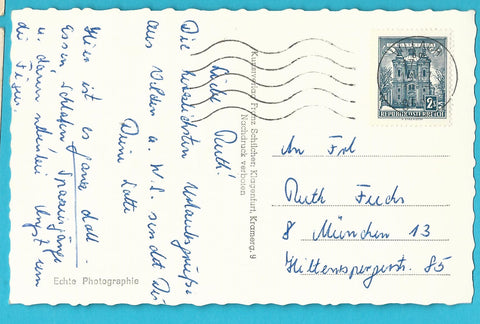 Liebe Ruth!
Die herzlichsten Urlaubsgrüße
aus Velden a. W.S. sendet Dir
Deine Lotte
Hier ist es ganz toll -
Essen, Schlafen, Spaziergänge
u. dann nebenbei Angst um
die Figur.
Echte Photographie
Kunstverlag Franz Schilcher, Klagenfurt, Kramerg. 9
Nachdruck verboten
2S
REPUBLIK ÖSTERREICH
An Frl
Ruth Fuchs
8 München 13
Hiltenspergerstr. 85